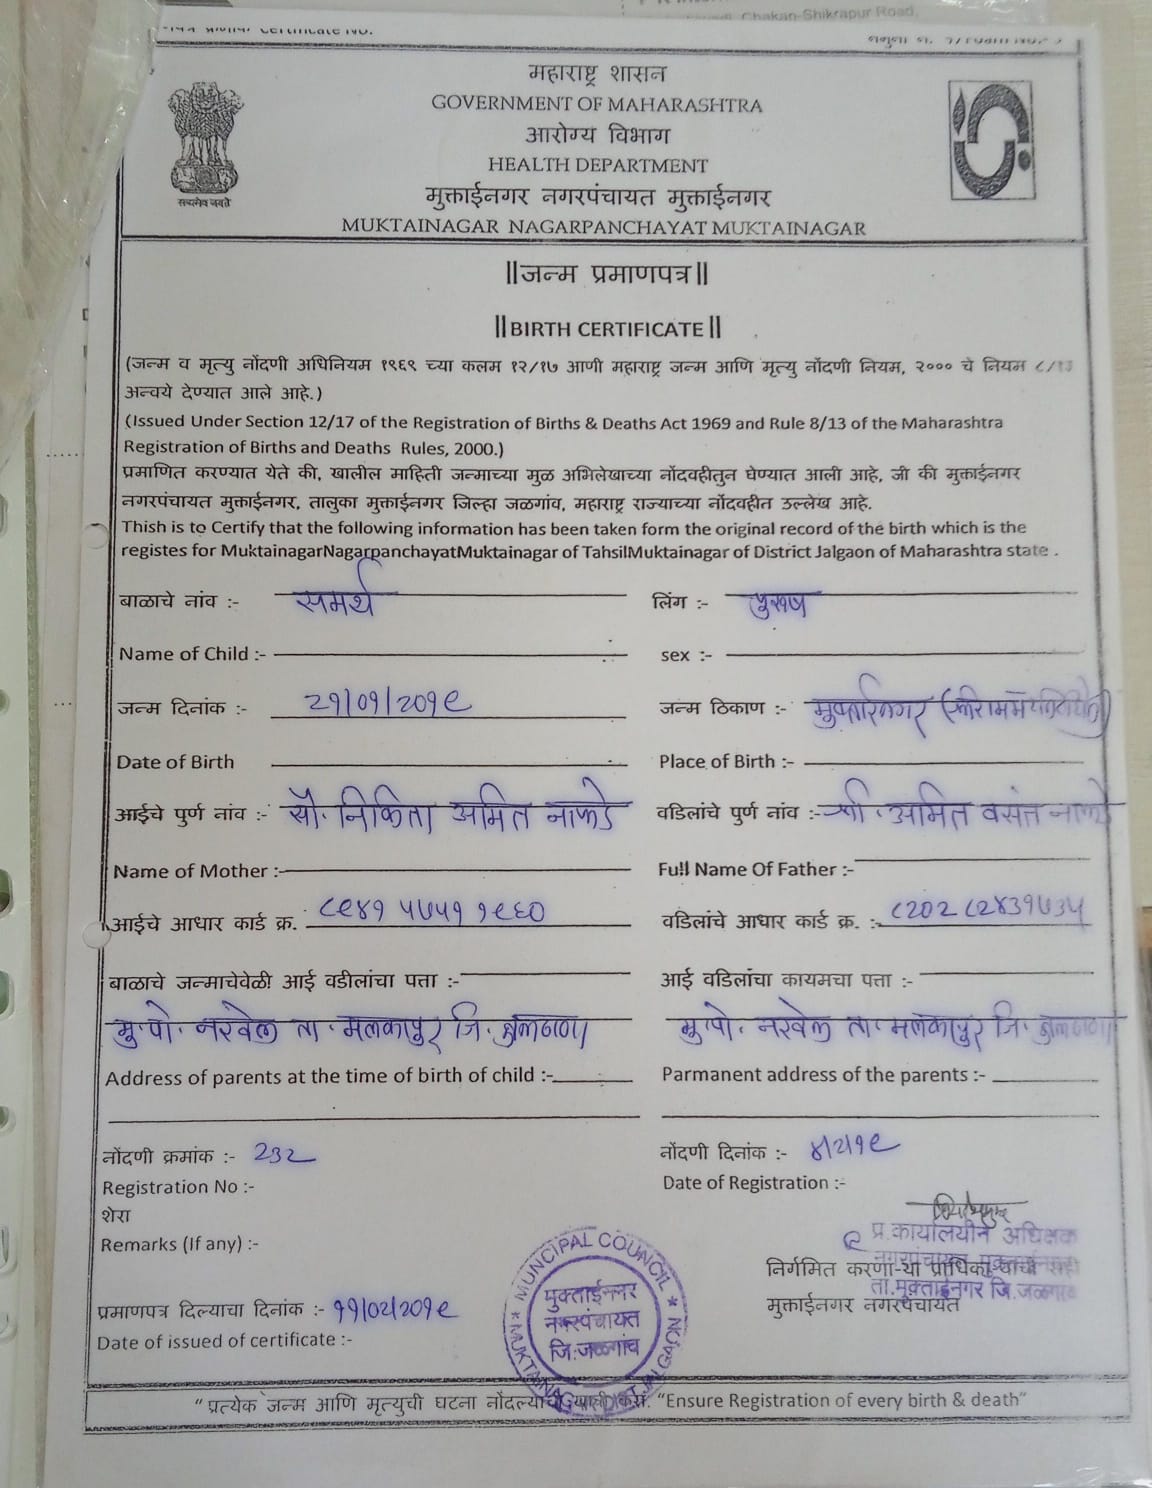 Chakan-Shikrapur Road,
Certificate No.
महाराष्ट्र शासन
GOVERNMENT OF MAHARASHTRA
आरोग्य विभाग
HEALTH DEPARTMENT
मुक्ताईनगर नगरपंचायत मुक्ताईनगर
MUKTAINAGAR NAGARPANCHAYAT MUKTAINAGAR
सत्यमेव जयते
||जन्म प्रमाणपत्र||
||BIRTH CERTIFICATE||
(जन्म व मृत्यु नोंदणी अधिनियम १९६९ च्या कलम १२/१७ आणी महाराष्ट्र जन्म आणि मृत्यु नोंदणी नियम, २००० चे नियम ८/१३
अन्वये देण्यात आले आहे.)
(Issued Under Section 12/17 of the Registration of Births & Deaths Act 1969 and Rule 8/13 of the Maharashtra
Registration of Births and Deaths Rules, 2000.)
प्रमाणित करण्यात येते की, खालील माहिती जन्माच्या मुळ अभिलेखाच्या नोंदवहीतुन घेण्यात आली आहे, जी की मुक्ताईनगर
नगरपंचायत मुक्ताईनगर, तालुका मुक्ताईनगर जिल्हा जळगांव, महाराष्ट्र राज्याच्या नोंदवहीत उल्लेख आहे.
Thish is to Certify that the following information has been taken form the original record of the birth which is the
registes for MuktainagarNagarpanchayatMuktainagar of TahsilMuktainagar of District Jalgaon of Maharashtra state .
बाळाचे नांव :- समर्थ लिंग :- पुरुष
Name of Child :- sex :-
जन्म दिनांक :- 2१/०१/2०१९ जन्म ठिकाण :- मुक्ताईनगर
Date of Birth Place of Birth :-
आईचे पुर्ण नांव :- सौ. निकिता अमित नाफडे वडिलांचे पुर्ण नांव :- श्री. अमित वसंत नाफडे
Name of Mother :- Full Name Of Father :-
आईचे आधार कार्ड क्र. ८९४१ ५७५१ १९६० वडिलांचे आधार कार्ड क्र. :- ८२०२ ८२४३१७३५
बाळाचे जन्माचेवेळी आई वडीलांचा पत्ता :- आई वडिलांचा कायमचा पत्ता :-
मु.पो. नरवेल ता. मलकापुर जि. बुलढाणा मु.पो. नरवेल ता. मलकापुर जि. बुलढाणा
Address of parents at the time of birth of child :- Parmanent address of the parents :-
नोंदणी क्रमांक :- 232 नोंदणी दिनांक :- ४/२/१९
Registration No :- Date of Registration :-
शेरा
Remarks (If any) :-
प्र.कार्यालयीन अधिक्षक
नगरपंचायत मुक्ताईनगर
निर्गमित करणा-या प्राधिका-याची सही
ता.मुक्ताईनगर जि.जळगाव
मुक्ताईनगर नगरपंचायत
प्रमाणपत्र दिल्याचा दिनांक :- ११/०२/२०१९
Date of issued of certificate :-
MUNCIPAL COUNCIL
मुक्ताईनगर
नगरपंचायत
जि.जळगांव
“ प्रत्येक जन्म आणि मृत्युची घटना “Ensure Registration of every birth & death”